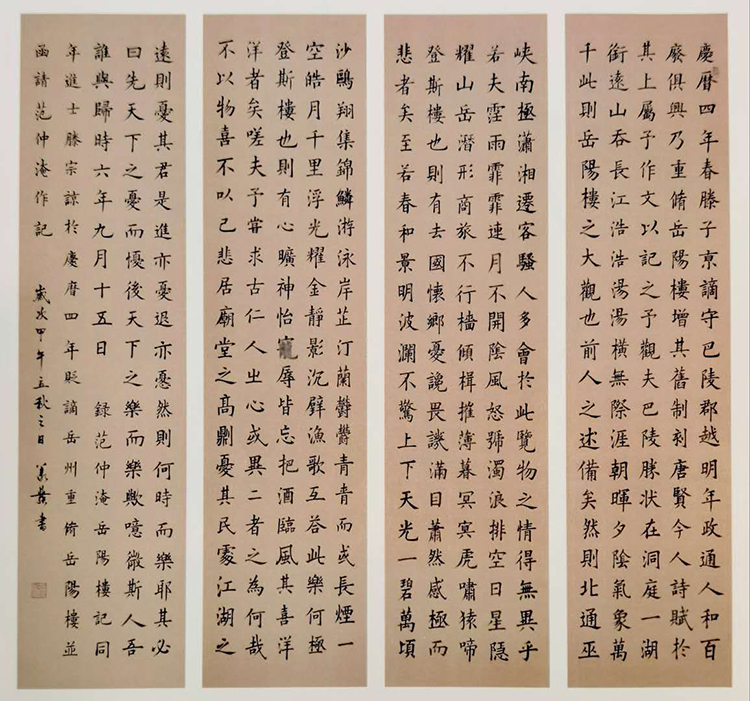 慶曆四年春滕子京謫守巴陵郡越明年政通人和百
廢俱興乃重脩岳陽樓增其舊制刻唐賢今人詩賦於
其上屬予作文以記之予觀夫巴陵勝狀在洞庭一湖
銜遠山吞長江浩浩湯湯橫無際涯朝暉夕陰氣象萬
千此則岳陽樓之大觀也前人之述備矣然則北通巫
峽南極瀟湘遷客騷人多會於此覽物之情得無異乎
若夫霪雨霏霏連月不開陰風怒號濁浪排空日星隱
耀山岳潛形商旅不行檣傾楫摧薄暮冥冥虎嘯猿啼
登斯樓也則有去國懷鄉憂讒畏譏滿目蕭然感極而
悲者矣至若春和景明波瀾不驚上下天光一碧萬頃
沙鷗翔集錦鱗游泳岸芷汀蘭鬱鬱青青而或長煙一
空皓月千里浮光耀金靜影沉璧漁歌互荅此樂何極
登斯樓也則有心曠神怡寵辱皆忘把酒臨風其喜洋
洋者矣嗟夫予嘗求古仁人之心或異二者之為何哉
不以物喜不以己悲居廟堂之高則憂其民處江湖之
遠則憂其君是進亦憂退亦憂然則何時而樂耶其必
曰先天下之憂而憂後天下之樂而樂歟噫微斯人吾
誰與歸時六年九月十五日 錄范仲淹岳陽樓記同
年進士滕宗諒於慶曆四年貶謫岳州重脩岳陽樓並
函請范仲淹作記 歲次甲午立秋之日 書